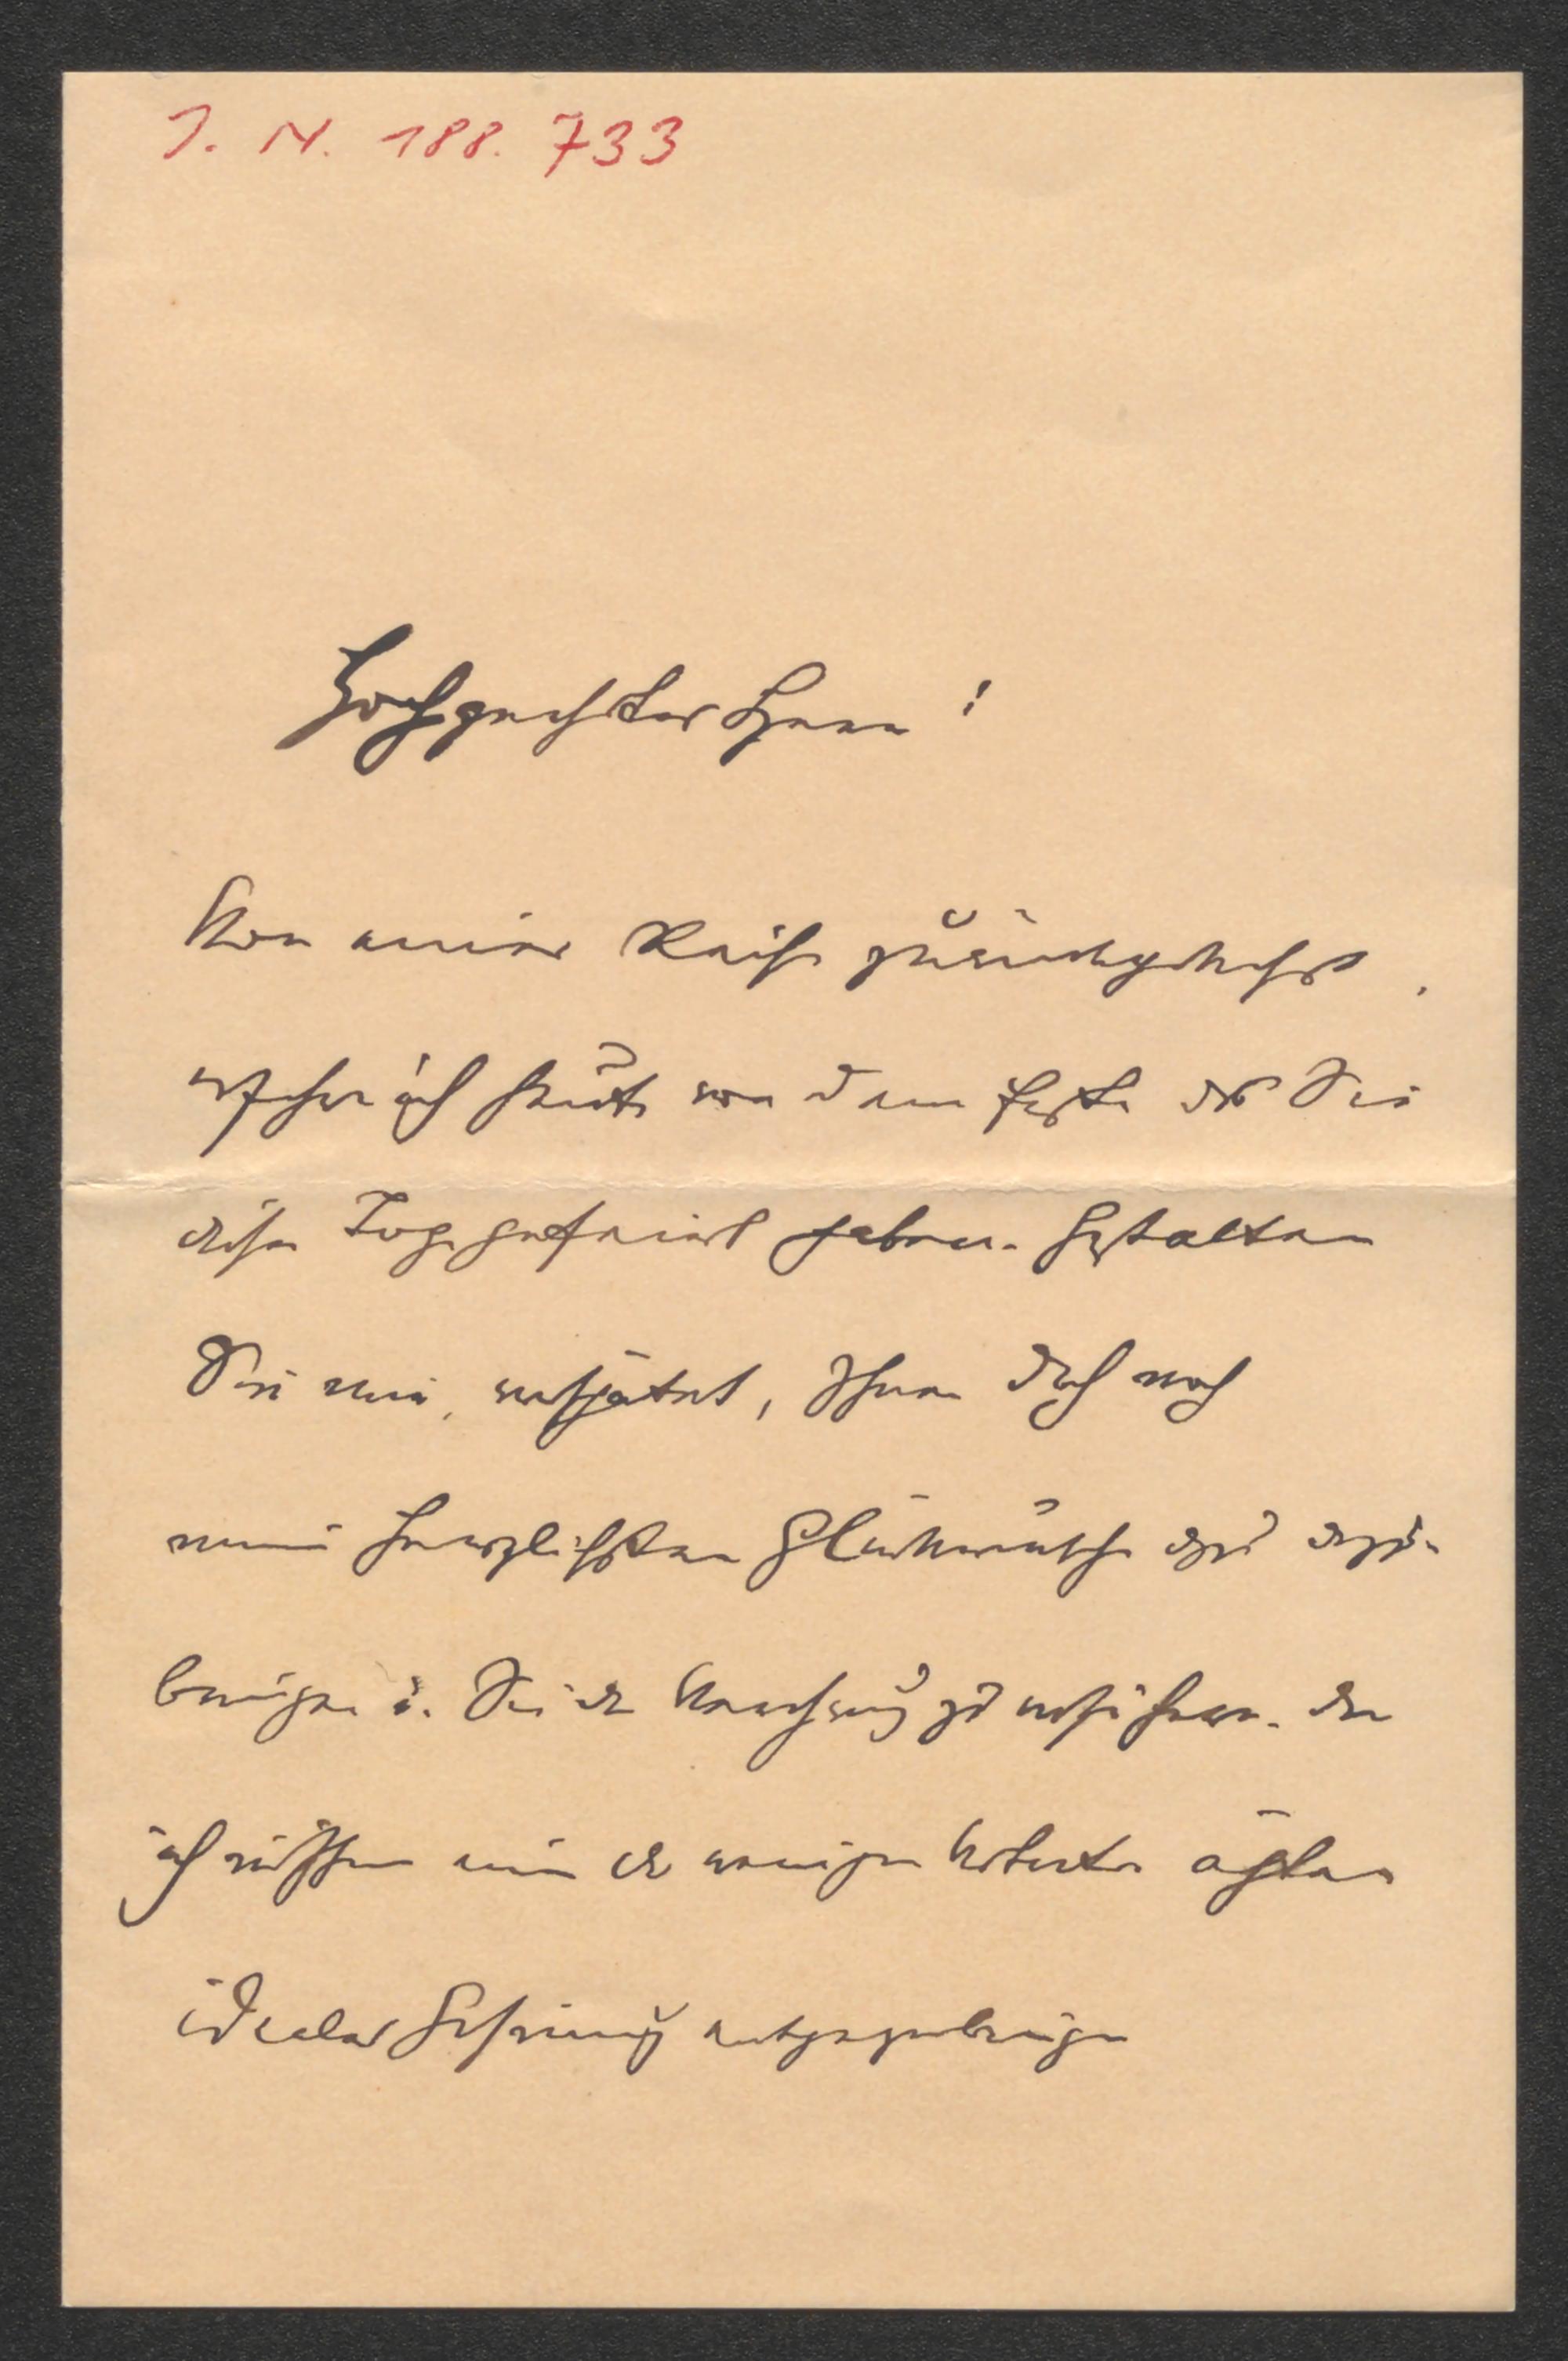 J. N. 188.733
Hochgeehrter Herr!
Von einer Reise zurückgekehrt,
erfahre ich heute von dem Feste das Sie
dieser Tage gefeiert haben. Gestatten
Sie mir, verspätet, Ihnen doch noch
meine herzlichsten Glückwünsche dazu darzu-
bringen u. Sie der Verehrung zu versichern, die
ich mit
idealer Gesinnung entgegenbringe